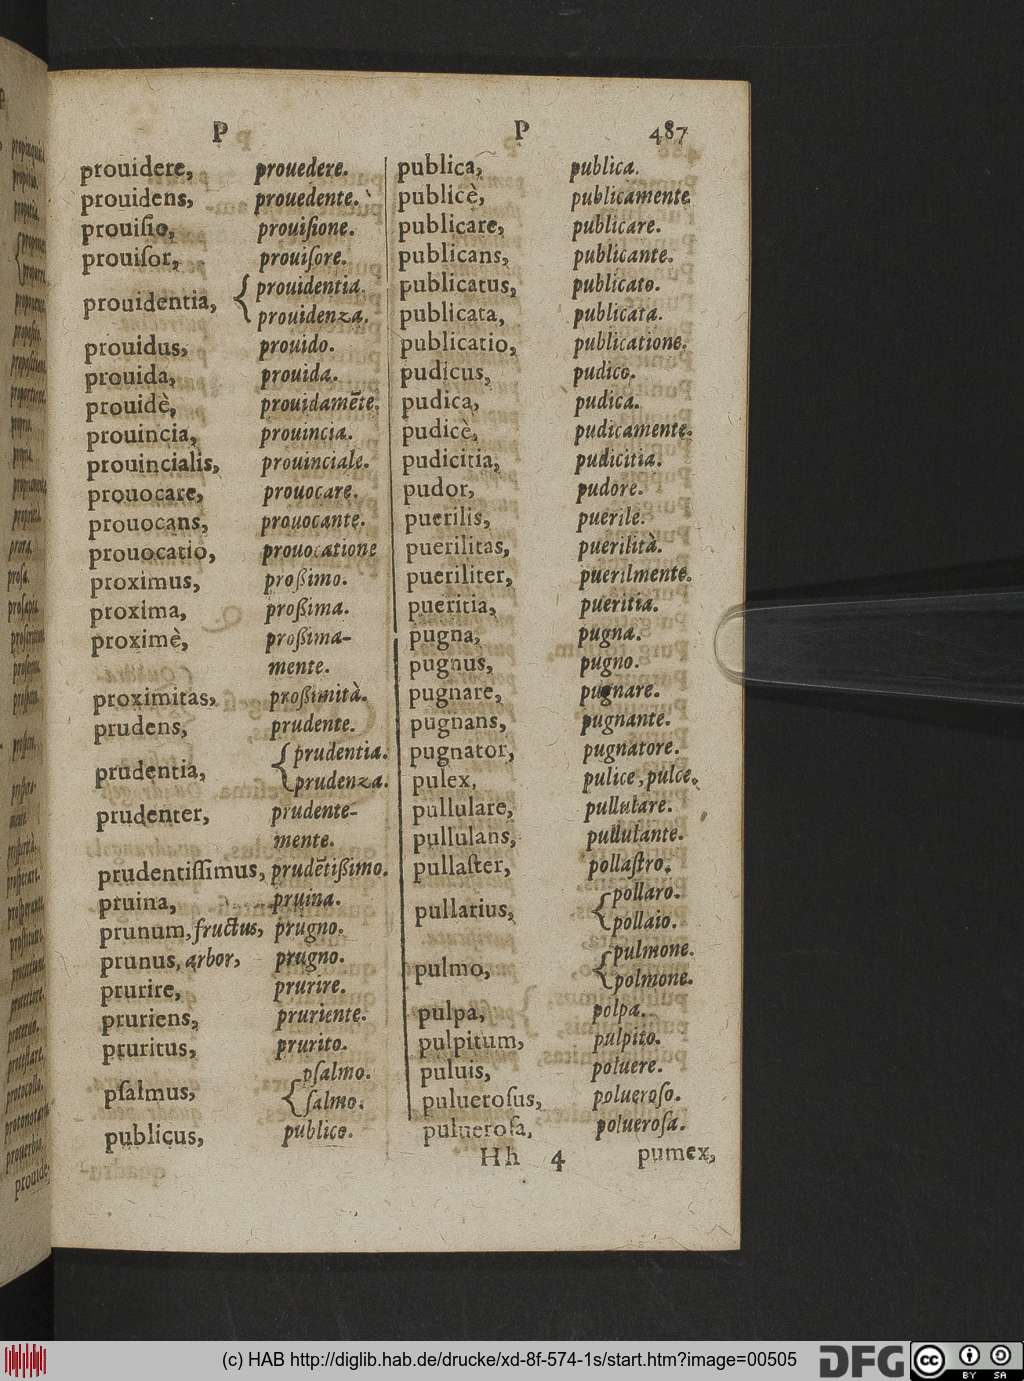 P P 487
prouidere, prouedere.
prouidens, prouedente.
prouiſio, prouiſione.
prouiſor, prouiſore.
prouidentia, { prouidentia.
prouidenza.
prouidus, prouido.
prouida, prouida.
prouidè, prouidamēte.
prouincia, prouincia.
prouincialis, prouinciale.
prouocare, prouocare.
prouocans, prouocante.
prouocatio, prouocatione
proximus, proßimo.
proxima, proßima.
proximè, proßima-
mente.
proximitas, proßimità.
prudens, prudente.
prudentia, { prudentia.
prudenza.
prudenter, prudente-
mente.
prudentiſſimus, prudētißimo.
pruina, pruina.
prunum, fructus, prugno.
prunus, arbor, prugno.
prurire, prurire.
pruriens, pruriente.
pruritus, prurito.
pſalmus, { pſalmo.
ſalmo.
publicus, publico.
publica, publica.
publicè, publicamente
publicare, publicare.
publicans, publicante.
publicatus, publicato.
publicata, publicata.
publicatio, publicatione.
pudicus, pudico.
pudica, pudica.
pudicè, pudicamente.
pudicitia, pudicitia.
pudor, pudore.
puerilis, puerile.
puerilitas, puerilità.
pueriliter, puerilmente.
pueritia, pueritia.
pugna, pugna.
pugnus, pugno.
pugnare, pugnare.
pugnans, pugnante.
pugnator, pugnatore.
pulex, pulice, pulce.
pullulare, pullulare.
pullulans, pullulante.
pullaſter, pollaſtro.
pullarius, { pollaro.
pollaio.
pulmo, { pulmone.
polmone.
pulpa, polpa.
pulpitum, pulpito.
puluis, poluere.
puluerosus, polueroſo.
pulueroſa, polueroſa.
Hh 4 pumex,
(c) HAB http://diglib.hab.de/drucke/xd-8f-574-1s/start.htm?image=00505
DFG cc BY SA